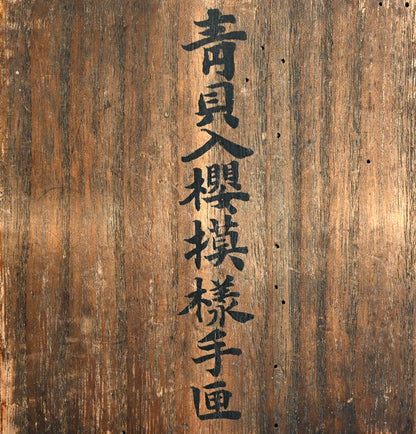 青貝入櫻摸樣手匣